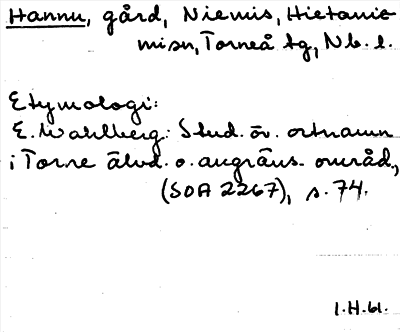 Hannu, gård, Niemis, Hietanie-
misn, Torneå tg, Nb. l.
Etymologi:
E. Wahlberg: Stud. öv. ortnamn
i Torne älvd. o. angräns. områd.,
(SOA 2267), s. 74.
I.H.61.